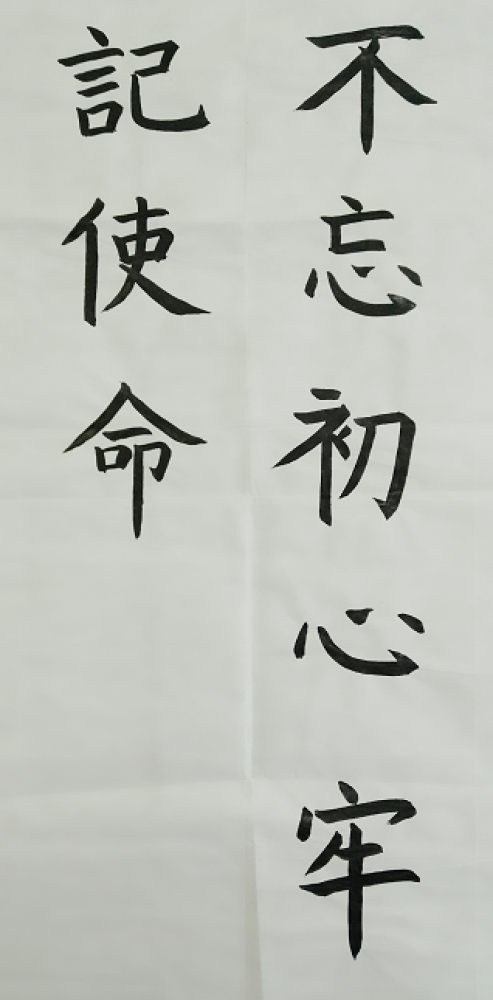 不忘初心牢
記使命